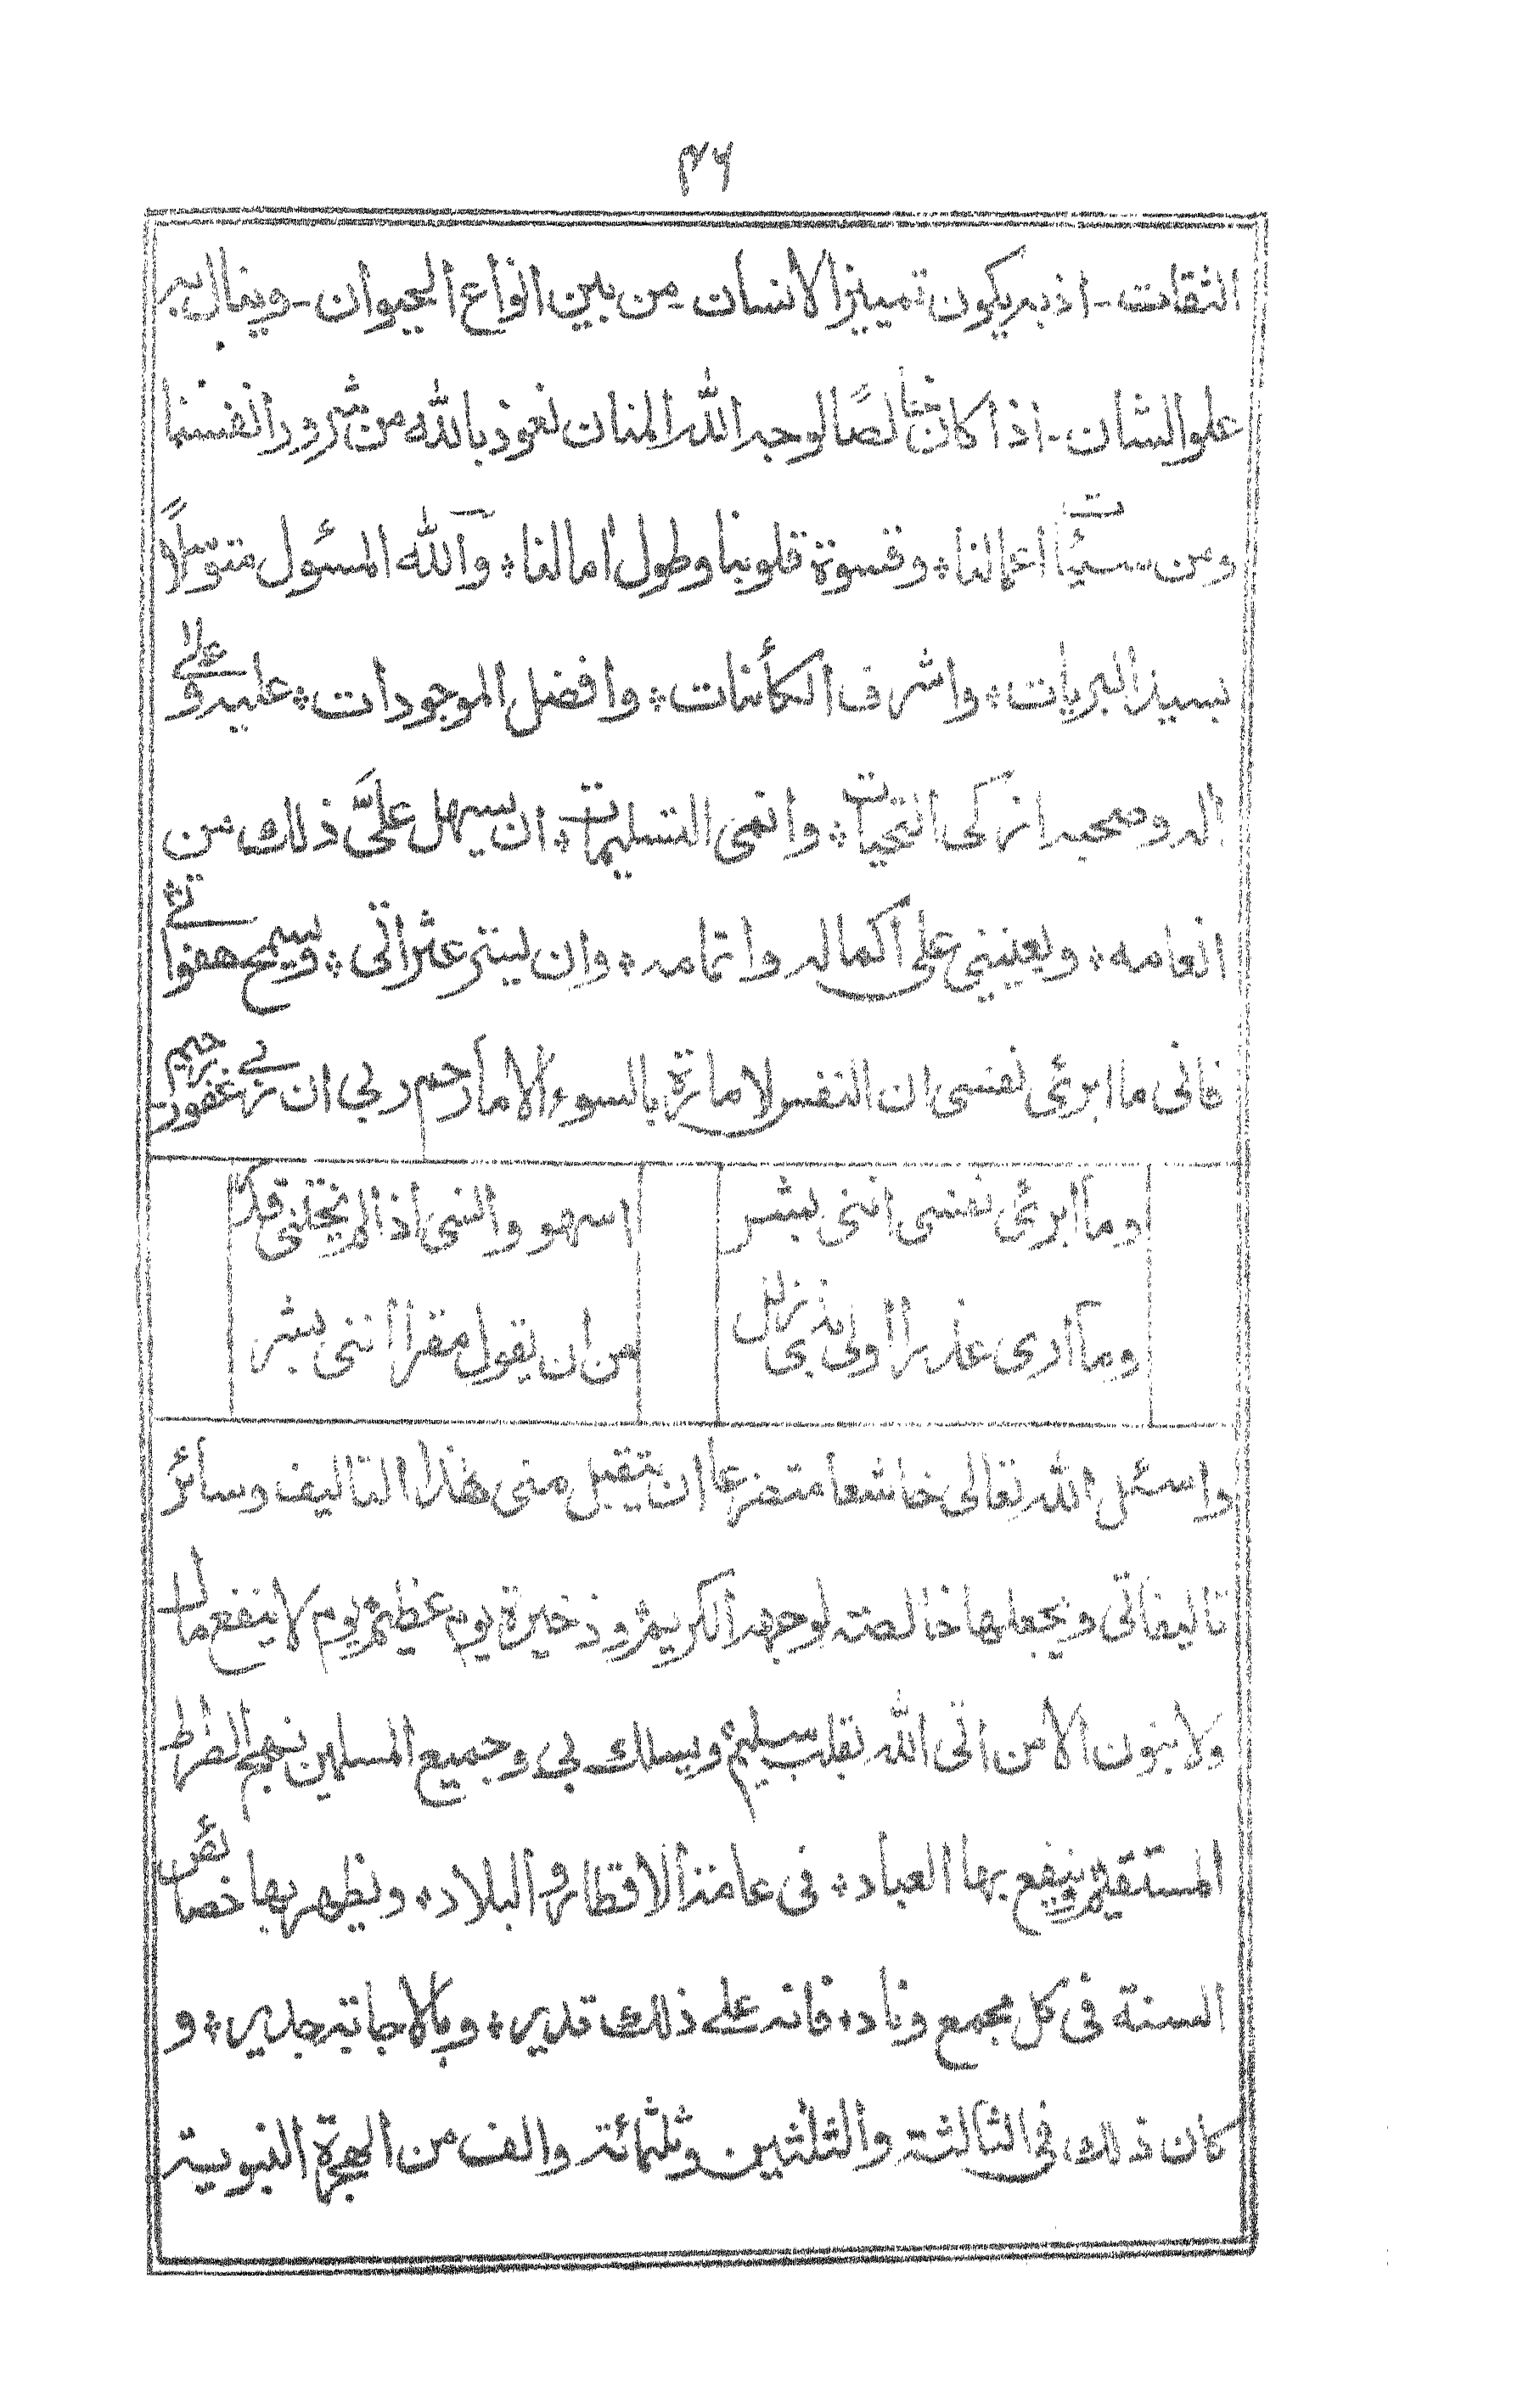 ٤٦
الثقات - اذ به يكون تمييز الانسان من بين انواع الحيوان - وينال به
علو الشان - اذا كان خالصًا لوجه الله المنان نعوذ بالله من شرور انفسنا
ومن سيئات اعمالنا ٭ وقسوة قلوبنا وطول امالنا ٭ والله المسئول متوسلًا
بسيد البريات ٭ واشرف الكائنات ٭ وافضل الموجودات ٭ عليه وعلى
اله وصحبه ازكى التحيات ٭ وانمى التسليمات ٭ ان يسهل علىَّ ذلك من
انعامه ٭ ويعيننى على اكماله واتمامه ٭ وان يستر عثراتى ٭ ويسمح هفواتى ٭
فانى ما ابرئ نفسى ان النفس لامارة بالسوء الا ما رحم ربى ان ربى غفور رحيم
وما ابرئ نفسى اننى بشر اسهو وانسى اذا لم تحتلنى قدر
وما ارى عذرا اولى بذى زلل من ان يقول مقرا اننى بشر
واسئل الله تعالى خاشعا متضرعا ان يتقبل منى هذا التاليف وسائر
تاليفاتى ويجعلها خالصة لوجهه الكريم ٭ وذخيرة يوم عظيم ٭ يوم لا ينفع مال
ولا بنون الا من اتى الله بقلب سليم ٭ ويسلك بى وجميع المسلمين نهج الصراط
المستقيم ٭ وينفع بها العباد ٭ فى عامة الاقطار والبلاد ٭ ويظهر بها خصائص
السنة فى كل مجمع وناد ٭ فانه على ذلك قدير ٭ وبالاجابة جدير ٭ و
كان ذلك فى الثالثة والثلثين وثلثمائة والف من الهجرة النبوية